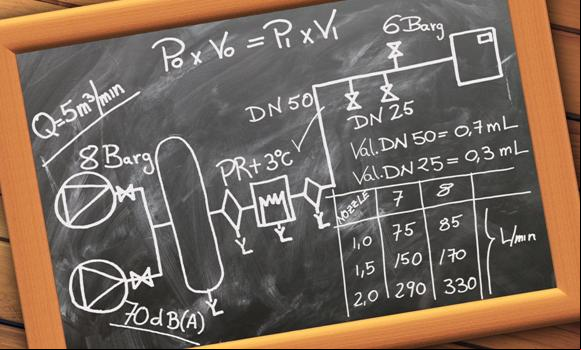 P₀ x V₀ = P₁ x V₁
6 Barg
Q=5m³/min
DN 50
DN 25
8 Barg
PR+3°C
Val.DN 50 = 0,7mL
Val.DN 25 = 0,3 mL
NOZZLE 7 8
1,0 75 85
1,5 150 170
2,0 290 330
L/min
70dB(A)